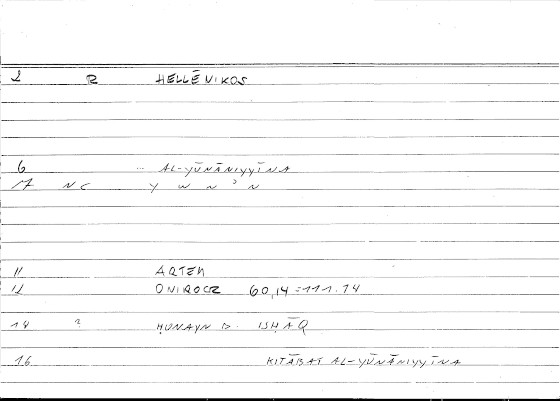 2 R HELLĒNIKOS
6 ... AL-YŪNĀNIYYĪNA
17 NC Y W N ʾ N
11 ARTEM
12 ONIROCR 60,14 = 111.14
14 ? ḤUNAYN B. ISḤĀQ
16 KITĀBAT AL-YŪNĀNIYYĪNA